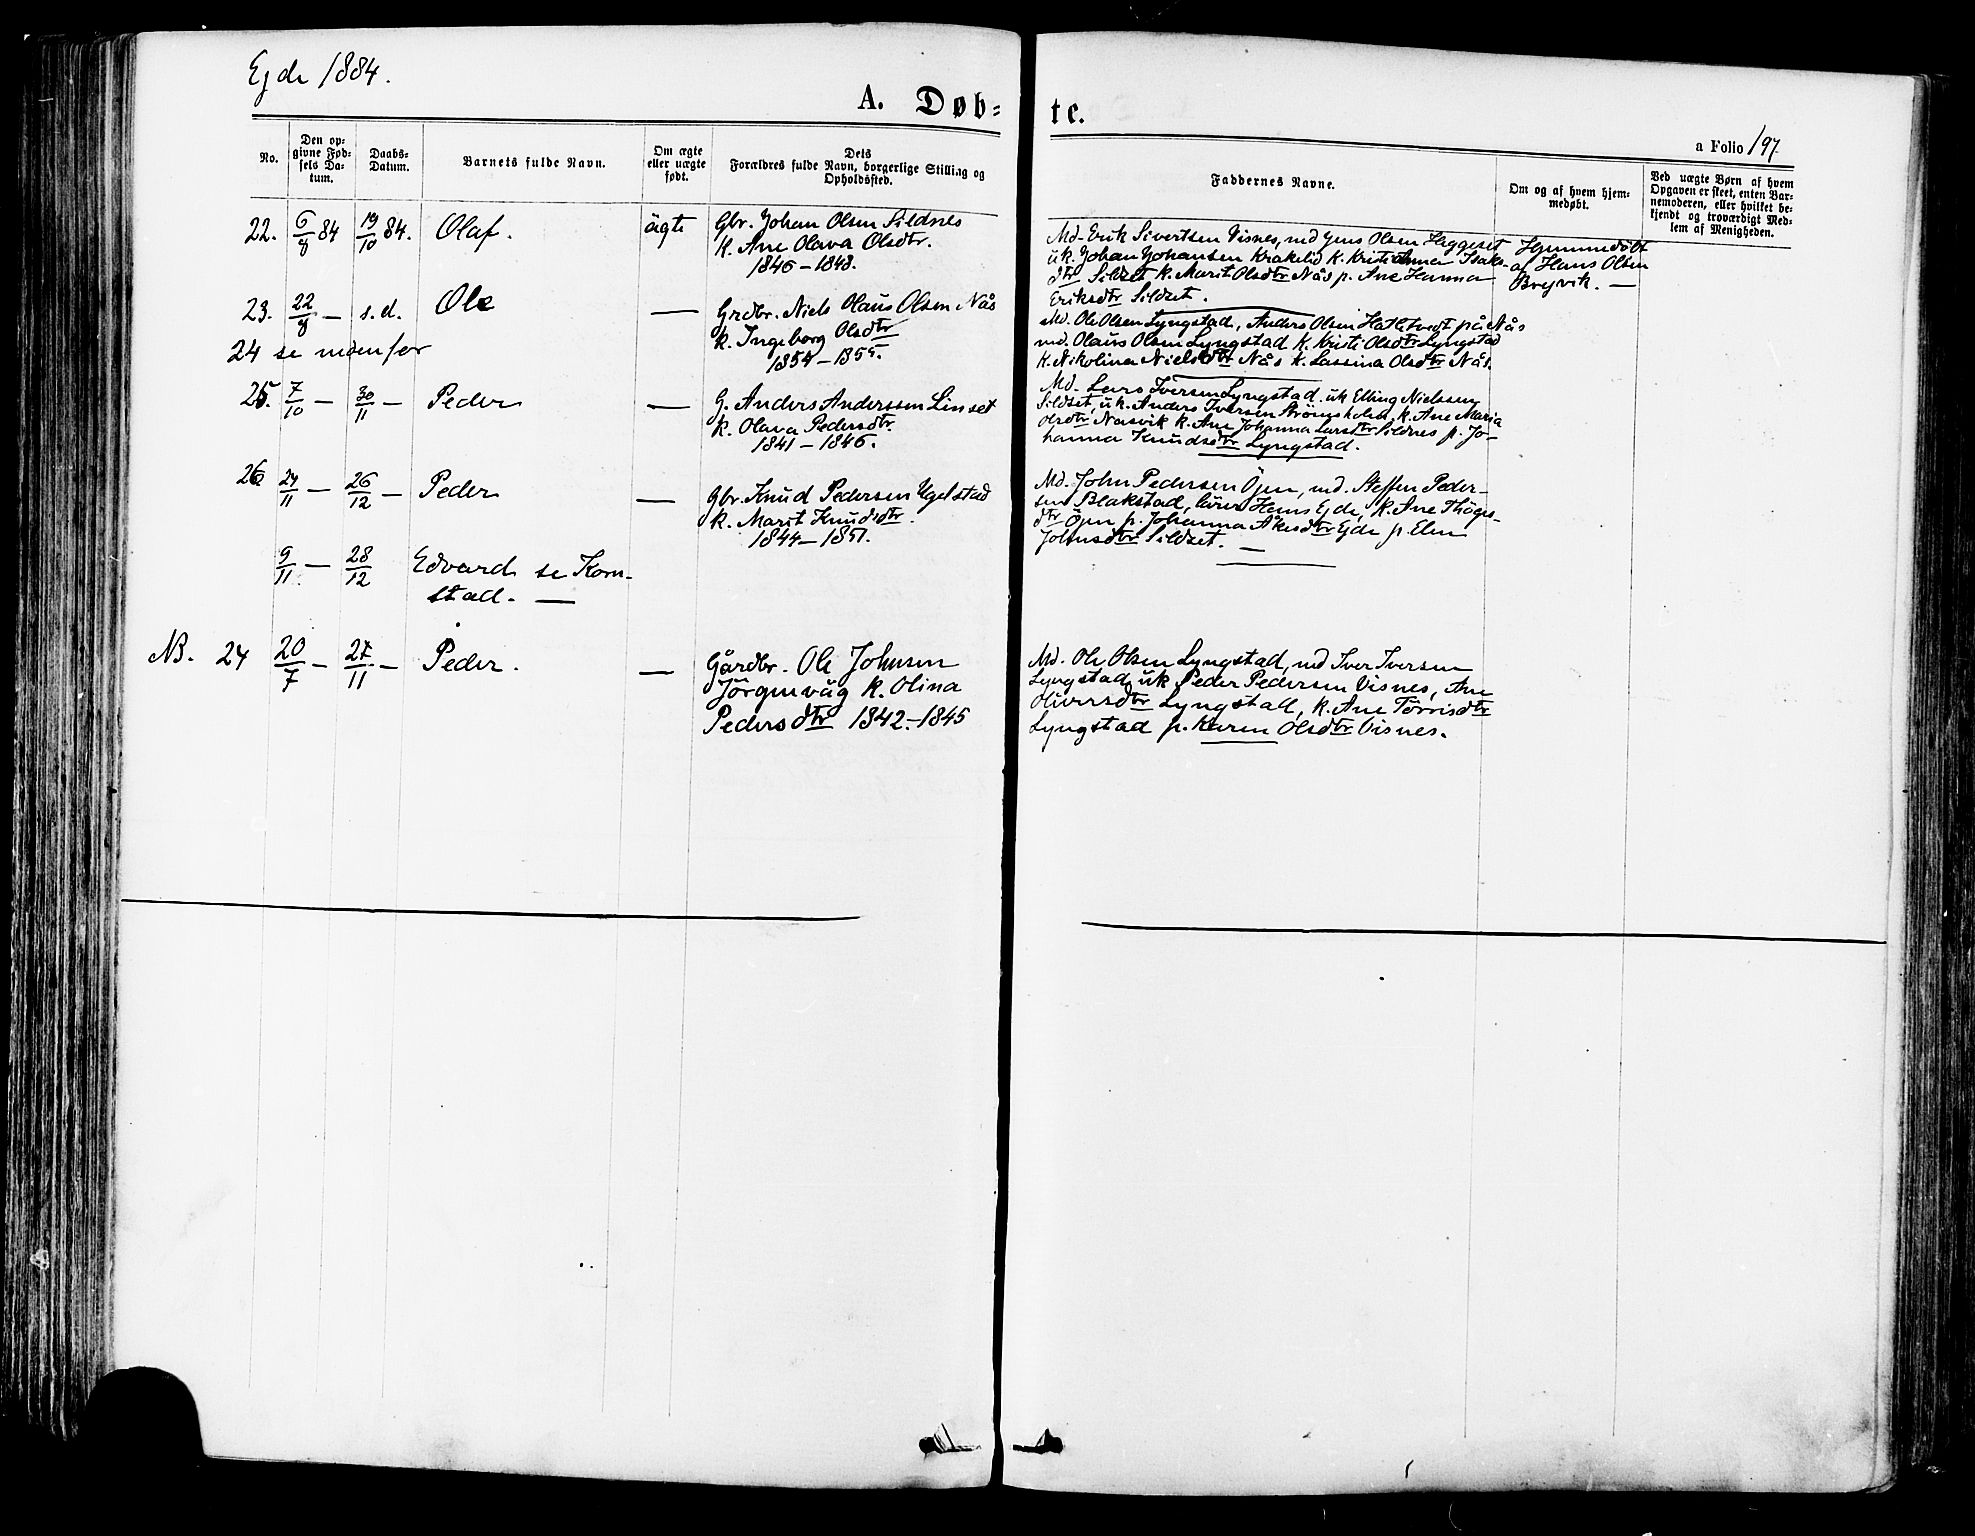 Ejde 1884.
A. Døb=
te.
a Folio 197.
No.
Den op-
givne Fød-
sels Da-
tum.
Daabs-
Datum.
Barnets fulde Navn.
Om ægte
eller uægte
født.
Dets
Forældres fulde Navn, borgerlige Stilling og
Opholdssted.
Faddernes Navne.
Om og af hvem hjem-
medøbt.
Ved uægte Børn af hvem
Opgaven er skeet, enten Bar-
nemoderen, eller hvilket be-
kjendt og troværdigt Med-
lem af Menigheden.
22. 6/8 84 19/10 84. Olaf. ägte
Gbr. Johan Olsen Sildnes
K. Ane Olava Olsdtr.
1846 - 1848.
Md. Erik Sivertsen Visnes, md Jens Olsen Haggeset
uk. Johan Johansen Krakelid K. Kristianna Isaks-
dtr Sildset K. Marit Olsdtr Nås p. Ane Hanna
Eriksdtr Sildset.
Hjemmedöbt
af Hans Olsen
Breivik. —
23. 22/8 — s.d. Ole —
Grdbr. Niels Olaus Olsen Nås
K. Ingeborg Olsdtr
1854 - 1855.
Md. Ole Olsen Lyngstad, Anders Olsen Hatletvedt på Nås
md. Olaus Olsen Lyngstad K. Kristi Olsdtr Lyngstad
K. Nikolina Nielsdtr Nås K. Lassina Olsdtr Nås.
24 se nedenfor
25. 7/10 — 30/11 — Peder —
G. Anders Anderssen Linset
K. Olava Pedersdtr.
1841 - 1846.
Md. Lars Iversen Lyngstad. uk Elling Nielsen
Sildset, uk. Anders Iversen Strömsholm, K. Ane Maria
Olsdtr Nasvik K. Ane Johanna Larsdtr Sildnes p. Jo-
hanna Knudsdtr Lyngstad.
26 24/11 — 26/12 — Peder —
Gbr. Knud Pedersen Ugelstad
K. Marit Knudsdtr.
1844 - 1851.
Md. John Pedersen Öjen, md. Steffen Peder-
sen Blakstad, lärer Hans Ejde, K. Ane
dtr Öjen p. Johanna Åkesdtr Ejde p Elen
Johnsdtr Sildset. —
9/11 — 28/12 Edvard se Korn-
stad. —
NB. 24 20/7 — 27/11 — Peder. —
Gårdbr. Ole Johnsen
Jörgenvåg K. Olina
Pedersdtr 1842 - 1845
Md. Ole Olsen Lyngstad, md Iver Iversen
Lyngstad, uk Peder Pedersen Visnes, Ane
Oliversdtr Lyngstad, K. Ane Törrisdtr
Lyngstad p. Karen Olsdtr Visnes.